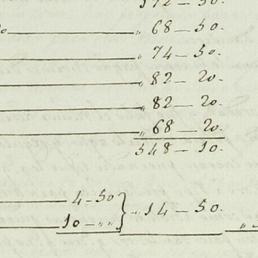 172 – 50.
" 68 – 50.
" 74 – 50.
" 82 – 20.
" 82 – 20.
" 68 – 20.
548 – 10.
4 – 50
10 – " " } " 14 – 50.